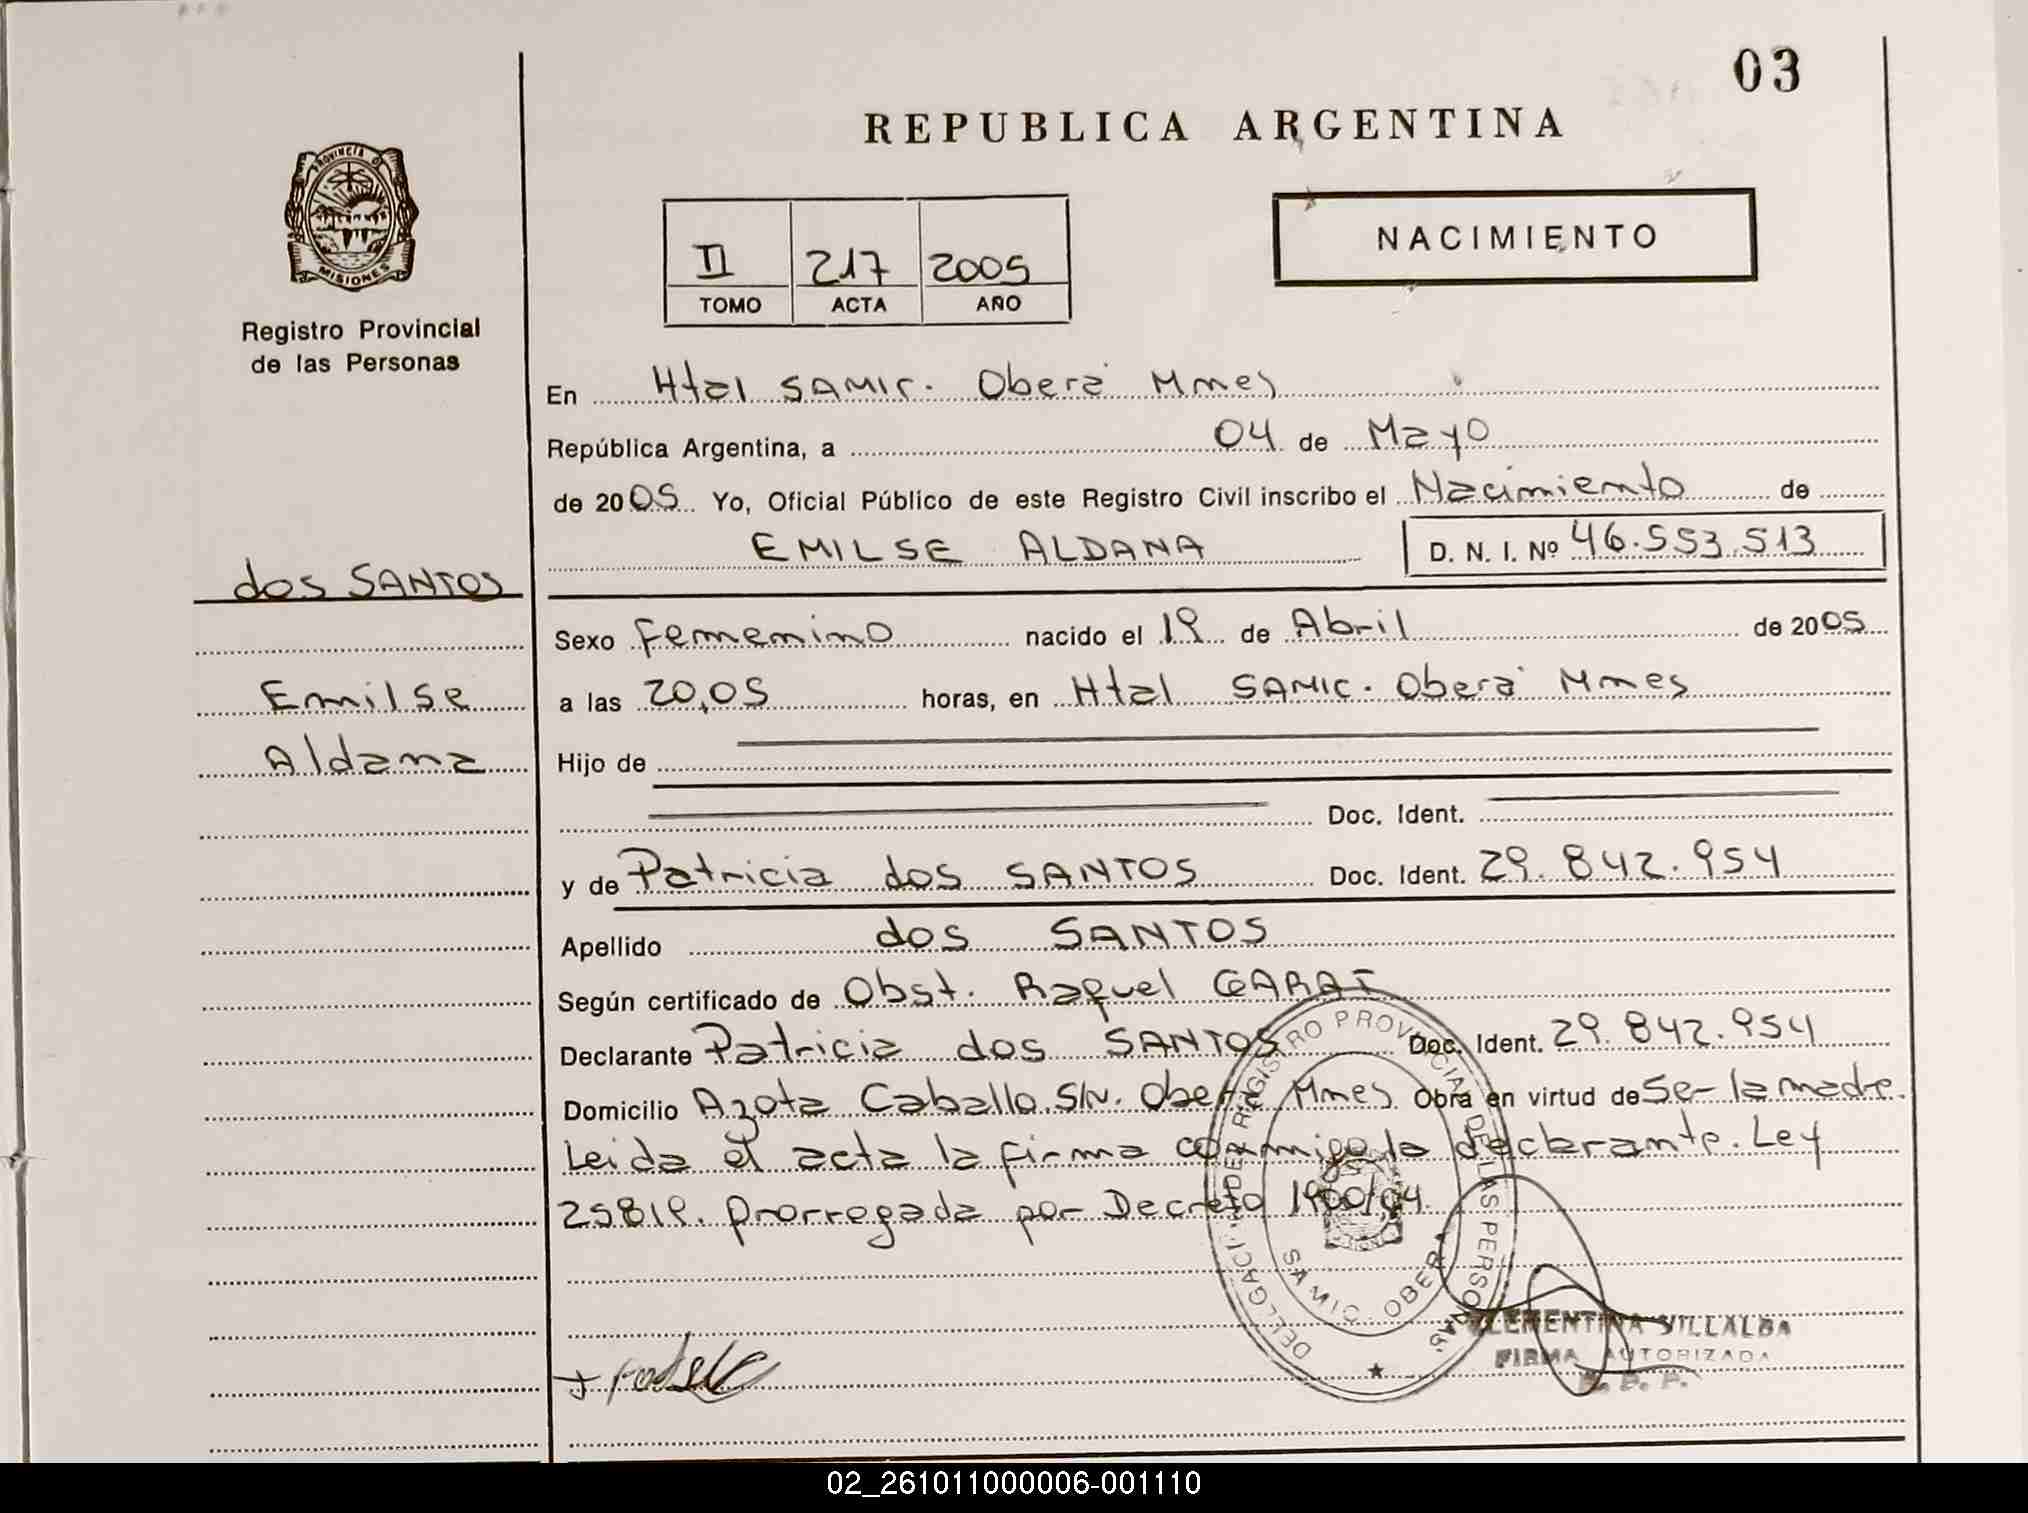 03
REPUBLICA ARGENTINA
PROVINCIA D
MISIONES
Registro Provincial
de las Personas
II 217 2005
TOMO ACTA AÑO
NACIMIENTO
En Htal SAMIC. Oberá Mnes
República Argentina, a 04 de Mayo
de 2005 Yo, Oficial Público de este Registro Civil inscribo el Nacimiento de
EMILSE ALDANA D. N. I. Nº 46.553.513
dos SANTOS
Emilse
Aldana
Sexo Femenino nacido el 19 de Abril de 2005
a las 20,05 horas, en Htal SAMIC. Oberá Mnes
Hijo de
Doc. Ident.
y de Patricia dos SANTOS Doc. Ident. 29.842.954
Apellido dos SANTOS
Según certificado de Obst. Raquel GARAY
Declarante Patricia dos SANTOS Doc. Ident. 29.842.954
Domicilio Azota Caballo S/N. Oberá Mnes Obra en virtud de Ser la madre.
Leida el acta la firma conmigo la declarante. Ley
25819. prorrogada por Decreto 1900/04.
REGISTRO PROVINCIAL DE LAS PERSONAS
OBERA
CLEMENTINA VILLALBA
FIRMA AUTORIZADA
02_261011000006-001110